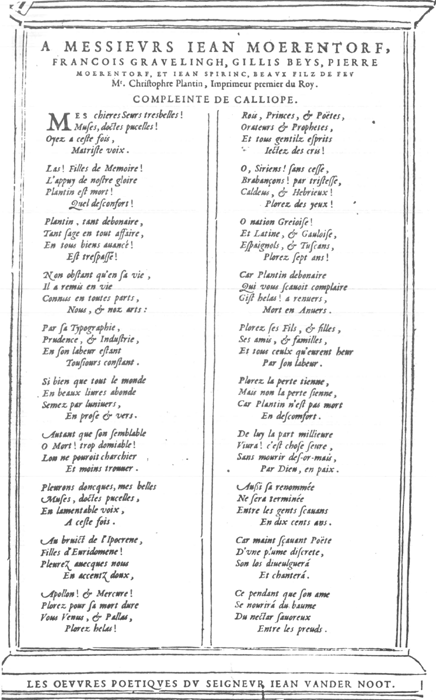 A MESSIEVRS IEAN MOERENTORF,
FRANCOIS GRAVELINGH, GILLIS BEYS, PIERRE
MOERENTORF, ET IEAN SPIRINC, BEAVX FILZ DE FEV
Mr. Christophre Plantin, Imprimeur premier du Roy.
COMPLEINTE DE CALLIOPE.
MEs chieres Seurs tresbelles!
Muses, doctes pucelles!
Oyez a ceste fois,
Ma triste voix.
Las! Filles de Memoire!
L'appuy de nostre gloire
Plantin est mort!
Quel desconfort!
Plantin, tant debonaire,
Tant sage en tout affaire,
En tous biens auancé!
Est trespassé!
Non obstant qu'en sa vie,
Il a remis en vie
Connus en toutes parts,
Nous, & noz arts:
Par sa Typographie,
Prudence, & Industrie,
En son labeur estant
Tousiours constant.
Si bien que tout le monde
En beaux liures abonde
Semez par luniuers,
En prose & vers.
Autant que son semblable
O Mort! trop domiable!
Lon ne pouroit charchier
Et moins trouuer.
Pleurons doncques, mes belles
Muses, doctes pucelles,
En lamentable voix,
A ceste fois.
Au bruict de l'Ipocrene,
Filles d'Euridomene!
Pleurez auecques nous
En accentz doux,
Apollon! & Mercure!
Plorez pour sa mort dure
Vous Venus, & Pallas,
Plorez helas!
Rois, Princes, & Poëtes,
Orateurs & Prophetes,
Et tous gentilz esprits
Iectez des cris!
O, Siriens! sans cesse,
Brabançons! par tristesse,
Caldeus, & Hebrieux!
Plorez des yeux!
O nation Greioise!
Et Latine, & Gauloise,
Espaignols, & Tuscans,
Plorez sept ans!
Car Plantin debonaire
Qui vous scauoit complaire
Gist helas! a renuers,
Mort en Anuers.
Plorez ses Fils, & filles,
Ses amis, & familles,
Et tous ceulx qu'eurent heur
Par son labeur.
Plorez la perte tienne,
Mais non la perte sienne,
Car Plantin n'est pas mort
En descomfort.
De luy la part millieure
Viura! c'est chose seure,
Sans mourir des-or-mais,
Par Dieu, en paix.
Aussi sa renommée
Ne sera terminée
Entre les gents scauans
En dix cents ans.
Car maint sçauant Poëte
D'vne plume discrete,
Son los diuulguerá
Et chanterá.
Ce pendant que son ame
Se nourirá du baume
Du nectar sauoreux
Entre les preuds.
LES OEVVRES POETIQVES DV SEIGNEVR IEAN VANDER NOOT.